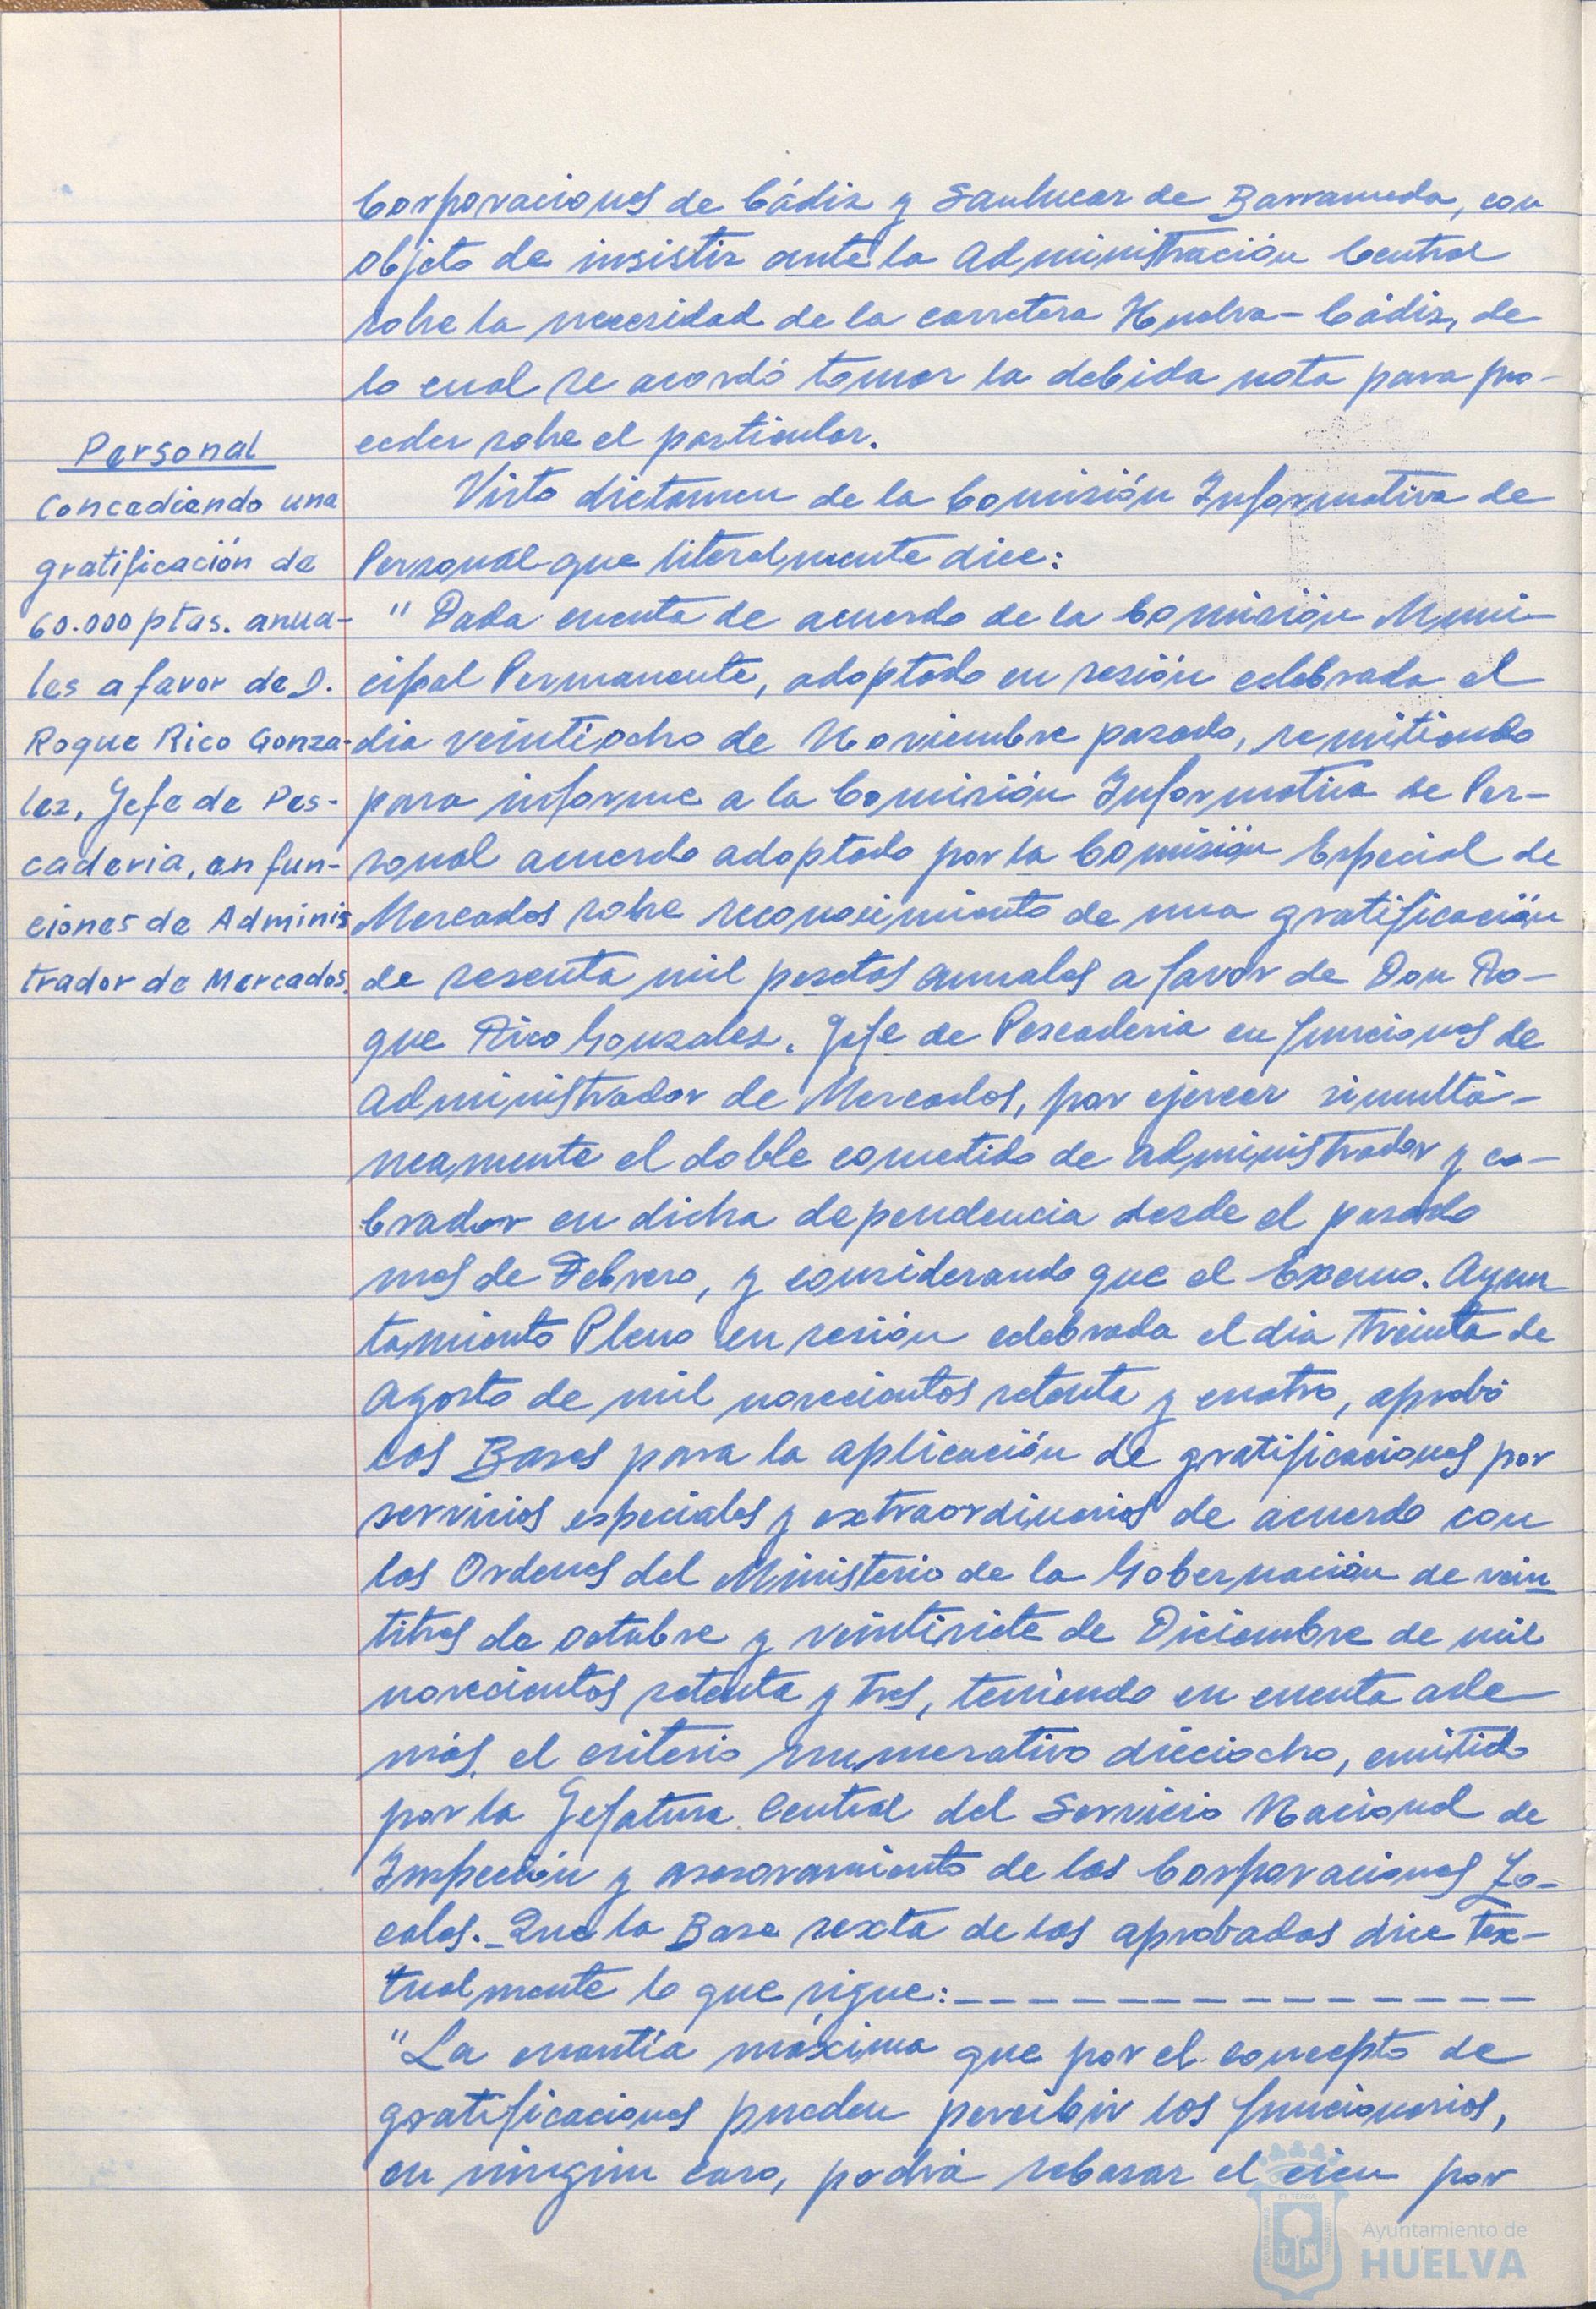 Corporaciones de Cádiz y Sanlucar de Barrameda, con
objeto de insistir ante la Administración Central
sobre la necesidad de la carretera Huelva-Cádiz, de
lo cual se acordó tomar la debida nota para pro-
ceder sobre el particular.
Personal
Concediendo una
gratificación de
60.000 ptas. anua-
les a favor de D.
Roque Rico Gonza-
lez, Jefe de Pes-
caderia, en fun-
ciones de Adminis
trador de Mercados.
Visto dictamen de la Comisión Informativa de
Personal que literalmente dice:
"Dada cuenta de acuerdo de la Comisión Muni-
cipal Permanente, adoptado en sesión celebrada el
dia veintiocho de Noviembre pasado, remitiendo
para informe a la Comisión Informativa de Per-
sonal acuerdo adoptado por la Comisión Especial de
Mercados sobre reconocimiento de una gratificación
de sesenta mil pesetas anuales a favor de Don Ro-
que Rico Gonzalez, Jefe de Pescaderia en funciones de
Administrador de Mercados, por ejercer simultá-
neamente el doble cometido de administrador y co-
brador en dicha dependencia desde el pasado
mes de Febrero, y considerando que el Excmo. Ayun
tamiento Pleno en sesión celebrada el dia treinta de
Agosto de mil novecientos setenta y cuatro, aprobó
las Bases para la aplicación de gratificaciones por
servicios especiales y extraordinarios de acuerdo con
las Ordenes del Ministerio de la Gobernación de vein
titres de Octubre y veintisiete de Diciembre de mil
novecientos setenta y tres, teniendo en cuenta ade
más, el criterio numerativo dieciocho, emitido
por la Jefatura Central del Servicio Nacional de
Inspección y asesoramiento de las Corporaciones Lo-
cales.- Que la Base sexta de las aprobadas dice tex-
tualmente lo que sigue:---------------
"La cuantía máxima que por el concepto de
gratificaciones pueden percibir los funcionarios,
en ningún caso, podrá rebasar el cien por
Ayuntamiento de
HUELVA